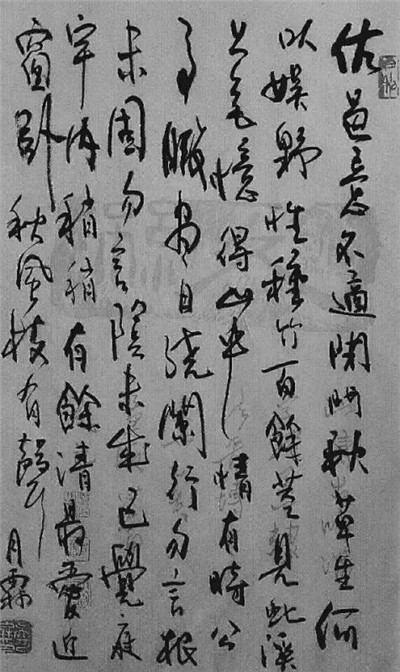 佐邑意不適閉門秋草生何
以娛野性種竹百餘莖見此溪
上色憶得山中情有時公
事暇盡日繞闌行勿言根
未固勿言陰未成已覺庭
宇內稍稍有餘清最愛近
窗臥秋風枝有聲 月霖